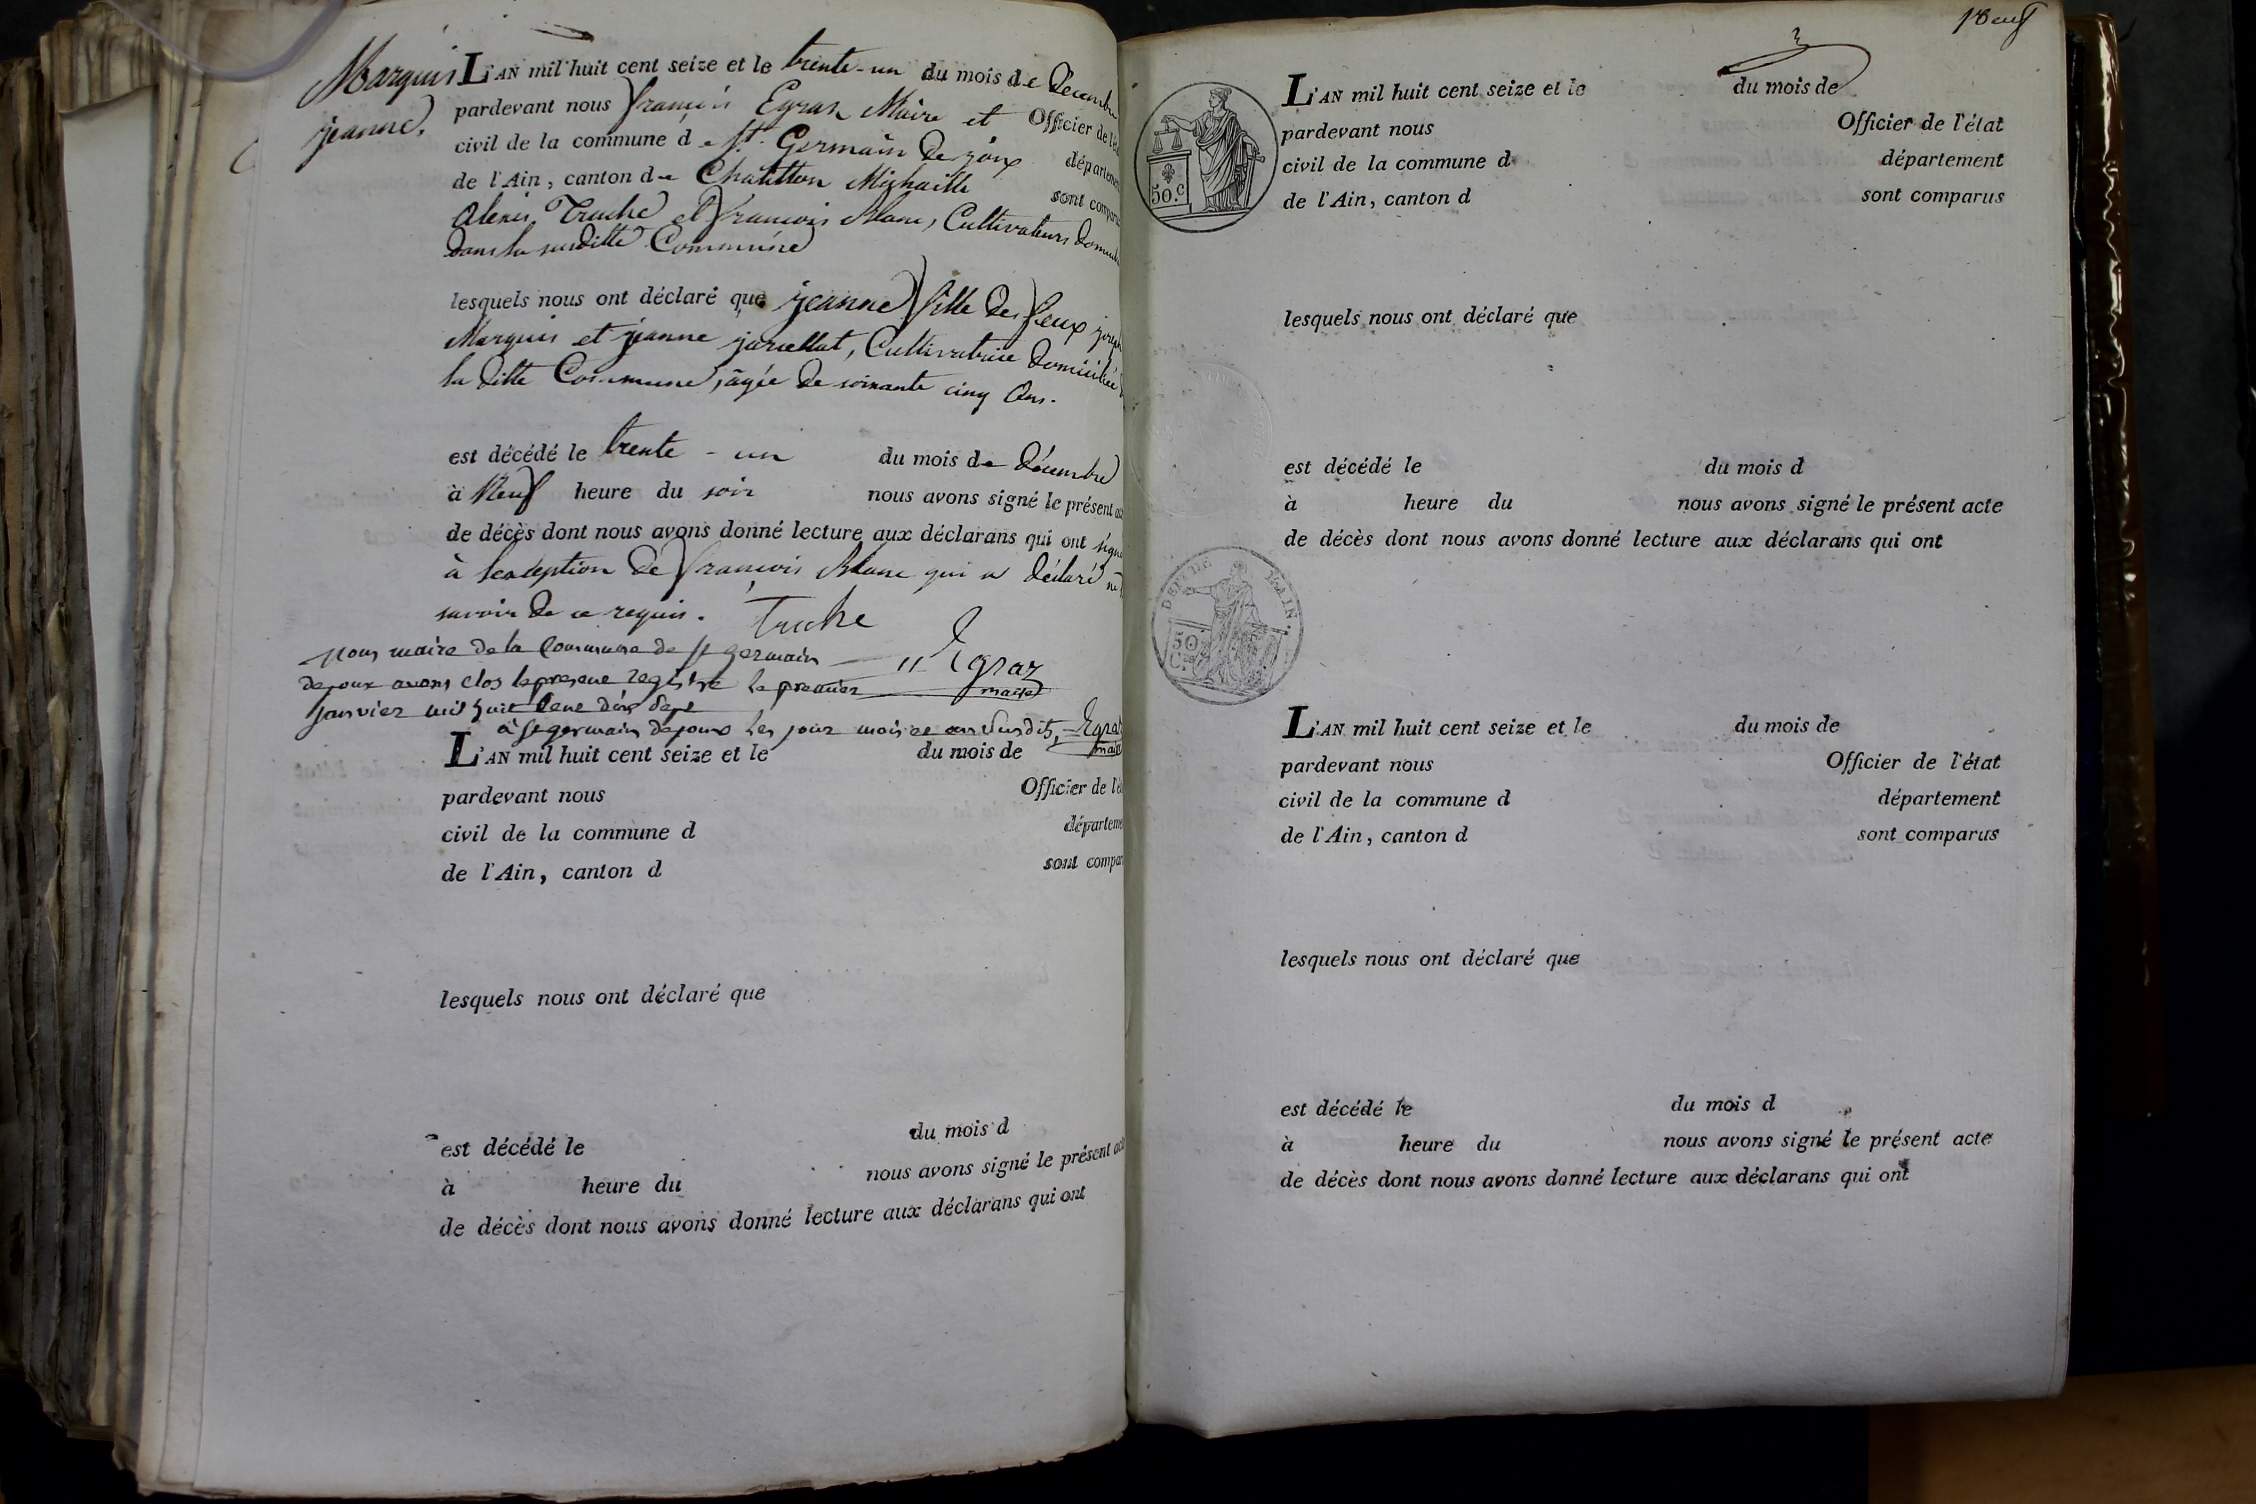 Marquis
jeanne.
L'AN mil huit cent seize et le trente-un du mois de Decembre
pardevant nous françois Egraz Maire et Officier de l'éta
civil de la commune de St. Germain De joux département
de l'Ain, canton de Chatillon Michaille sont comparus
Alexis Truche et francois Blanc, Cultivateurs Domicil
dans la susditte Commune
lesquels nous ont déclaré que jeanne fille des feux joseph
Marquis et jeanne jurellat, Cultivatrice Domiciliée
la ditte Commune, âgée de soixante cinq Ans.
est décédé le trente - un du mois de décembre
à Neuf heure du soir nous avons signé le présent acte
de décès dont nous avons donné lecture aux déclarans qui ont signé
à lexception de francois Blanc qui a déclaré ne
savoir de ce requis. Truche
nous maire de la Commune de st germain Egraz
dejoux avons clos le present registre le premier maire
janvier mil huit Cent dix sept
à st germain dejoux les jour mois et an susdits, Egraz
maire
L'AN mil huit cent seize et le du mois de
pardevant nous Officier de l'é
civil de la commune d départeme
de l'Ain, canton d sont compar
lesquels nous ont déclaré que
est décédé le du mois d
à heure du nous avons signé le présent acte
de décès dont nous avons donné lecture aux déclarans qui ont
50.c
L'AN mil huit cent seize et le du mois de
pardevant nous Officier de l'état
civil de la commune d département
de l'Ain, canton d sont comparus
lesquels nous ont déclaré que
est décédé le du mois d
à heure du nous avons signé le présent acte
de décès dont nous avons donné lecture aux déclarans qui ont
DEP. DE L'AIN.
50
C.
L'AN mil huit cent seize et le du mois de
pardevant nous Officier de l'état
civil de la commune d département
de l'Ain, canton d sont comparus
lesquels nous ont déclaré que
est décédé le du mois d
à heure du nous avons signé le présent acte
de décès dont nous avons donné lecture aux déclarans qui ont